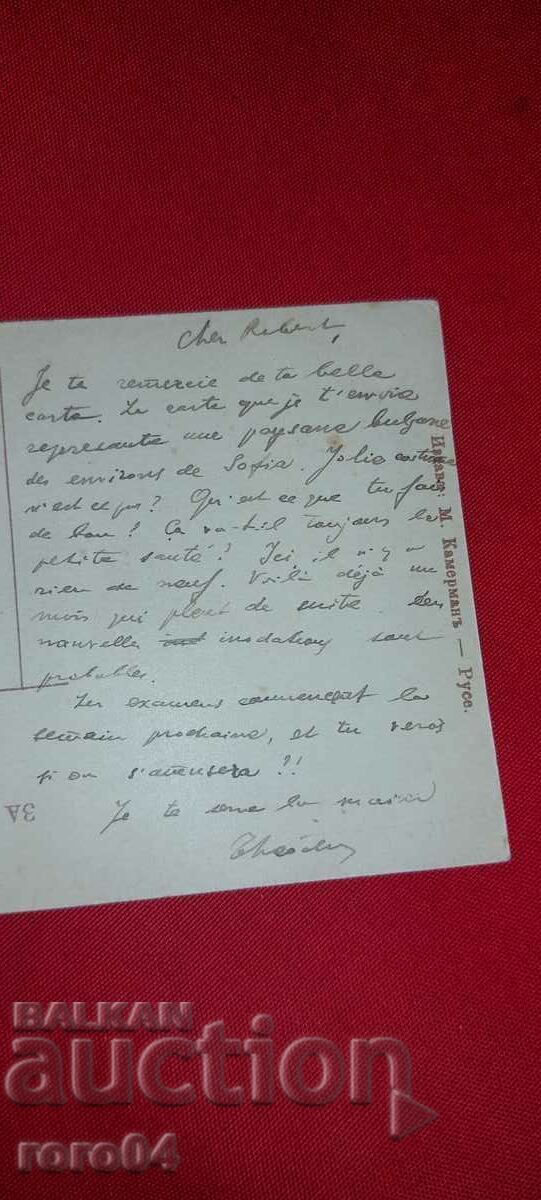 Cher Robert,
Je te remercie de ta belle
carte. La carte que je t'envoie
represante une paysane bulgare
des environs de Sofia. Jolie costume
n'est ce pas? Qu'est ce que tu fais
de bon? Ça va-t-il toujours la
petite santé? Ici, il n'y a
rien de neuf. Voilà déjà un
mois qui pleut de suite. Des
nouvelles inodations sont
probables.
Les examens commencent la
semain prochaine, et tu veras
si on s'amusera!!
Je te serre la main
Издава: М. Камерманъ — Русе.
ЗА
BALKAN
auction
roro04